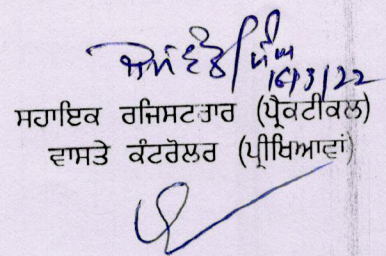 16/3/22
ਸਹਾਇਕ ਰਜਿਸਟਰਾਰ (ਪ੍ਰੈਕਟੀਕਲ)
ਵਾਸਤੇ ਕੰਟਰੋਲਰ (ਪ੍ਰੀਖਿਆਵਾਂ)